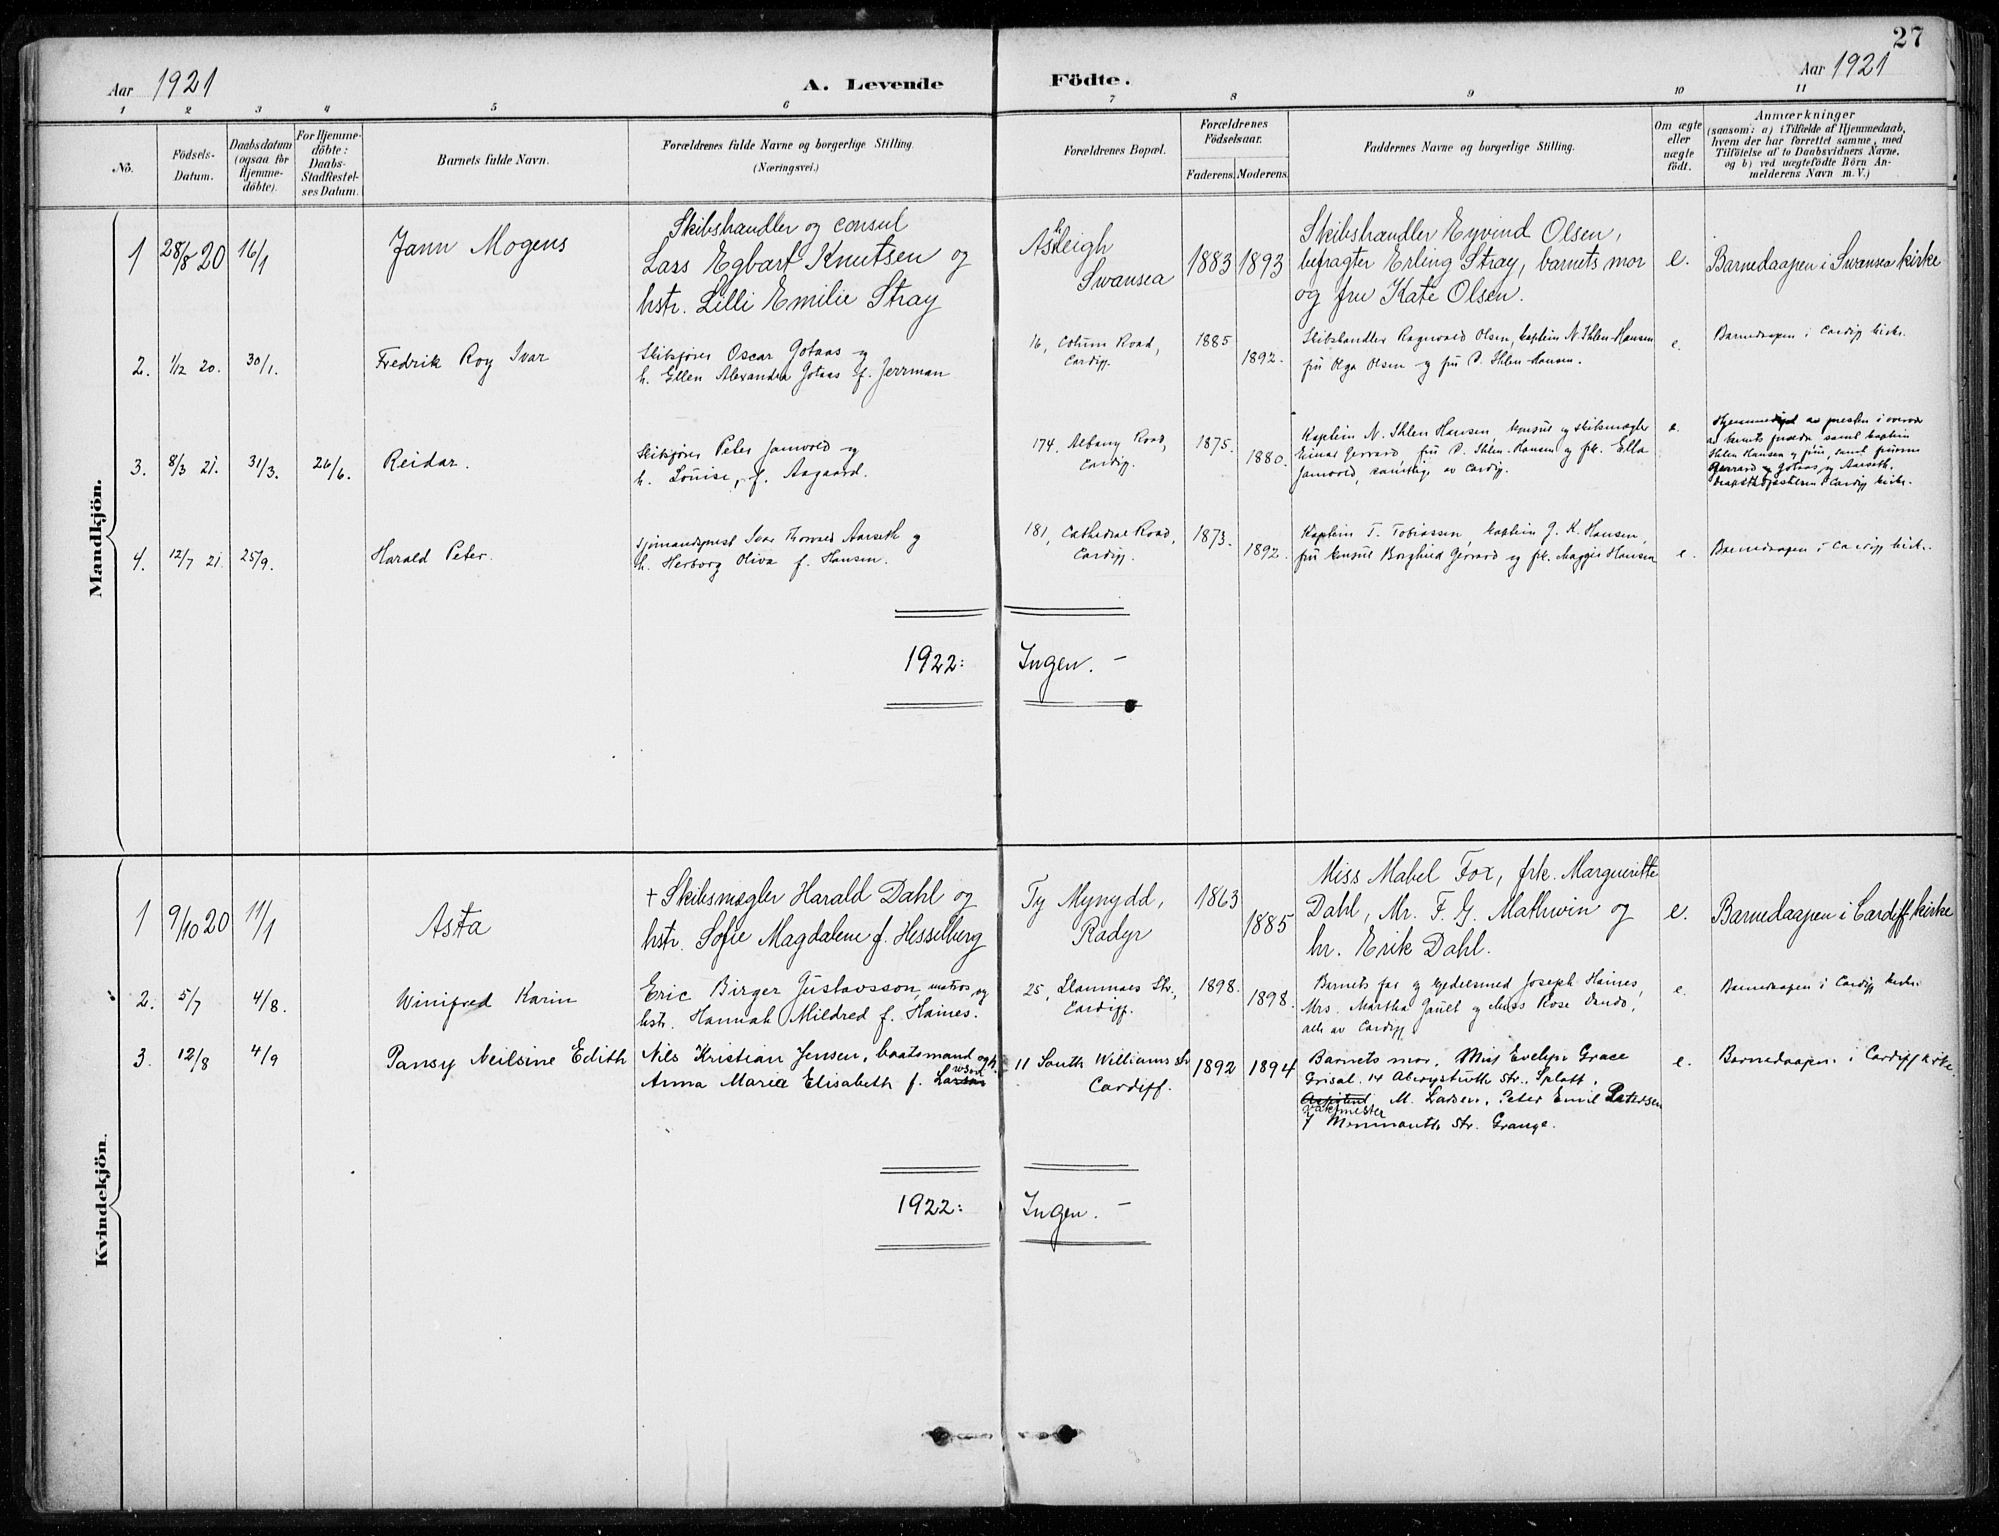 27
Aar 1921
A. Levende Födte.
Aar 1921
1 2 3 4 5 6 7 8 9 10 11
No.
Födsels-Datum.
Daabsdatum (ogsaa för Hjemme-döbte).
For Hjemme-döbte: Daabs-Stadfæstel-ses Datum.
Barnets fulde Navn.
Forældrenes fulde Navne og borgerlige Stilling. (Næringsvei.)
Forældrenes Bopæl.
Forældrenes Födselsaar.
Faderens. Moderens.
Faddernes Navne og borgerlige Stilling.
Om ægte eller uægte födt.
Anmærkninger
(saasom: a) i Tilfælde af Hjemmedaab,
hvem der har forrettet samme, med
Tilföielse af to Daabsvidners Navne,
og b) ved uægtefödte Börn An-
melderens Navn m.V.)
Mandkjön.
1 28/8 20 16/1 Jann Mogens
Skibshandler og consul
Lars Egbart Knutsen og
hstr. Lilli Emilie Stray
Ashleigh
Swansea
1883 1893
Skibshandler Eyvind Olsen,
befragter Erling Stray, barnets mor
og fru Kate Olsen.
e. Barnedaapen i Swansea kirke
2. 1/12 20. 30/1. Fredrik Roy Ivar
Skibsfører Oscar Gotaas og
h. Ellen Alexandra Gotaas f. Jerrman
16, Colum Road,
Cardiff.
1885 1892.
Skibshandler Ragnvald Olsen, kaptein N. Ihlen-Hansen
fru Olga Olsen og fru P. Ihlen-Hansen.
e. Barnedaapen i Cardiff kirke.
3. 8/3 21. 31/3. 26/6. Reidar.
Skibsfører Peter Jamvold og
h. Louise, f. Aagaard.
174, Albany Road,
Cardiff.
1875. 1880.
Kaptein N. Ihlen Hansen, konsul og skibsmægler
Einar Gerrard, fru P. Ihlen-Hansen og frk. Ella
Jamvold, samtlige av Cardiff.
e. Hjemmedøpt av presten i overvær
av barnets forældre samt kaptein
Ihlen Hansen og frue, samt fruerne
Gerrard og Gotaas og Aarseth.
i Cardiff kirke.
4. 12/7 21. 25/9. Harald Peter.
Sjømandsprest Ivar Thorvald Aarseth og
h. Herborg Oliva f. Hansen.
181, Cathedral Road,
Cardiff.
1873. 1892.
Kaptein T. Tobiassen, kaptein J. K. Hansen,
fru konsul Borghild Gerrard og frk. Maggie Hansen
e. Barnedaapen i Cardiff kirke.
1922: Ingen. –
Kvindekjön.
1 9/10 20 11/1 Asta
+ Skibsmægler Harald Dahl og
hstr. Sofie Magdalene f. Hesselberg
Ty Mynydd,
Radyr
1863 1885
Miss Mabel Fox, frk. Marguerite
Dahl, Mr. F. G. Mathwin og
hr. Erik Dahl.
e. Barnedaapen i Cardiff kirke
2. 5/7 4/8. Winifred Karin
Eric Birger Gustavsson, matros, og
hstr. Hannah Mildred f. Haines.
25, Llanmaes Str.,
Cardiff.
1898. 1898.
Barnets far og Joseph Haines,
Mrs. Martha Jault og Miss Rose
alle av Cardiff.
e. Barnedaapen i Cardiff kirke.
3. 12/8 4/9 Pansy Neilsine Edith
Nils Kristian Jensen, baatsmand og h.
Anna Maria Elisabeth f.
11 South William str
Cardiff.
1892 1894
Barnets mor, Miss Evelyn Grace
Grisal, 14 Aberystwith Str., Splott,
M. Larsen, Peter Emil Petersen
7 Monmouth Str. Grange.
e. Barnedaapen i Cardiff kirke.
1922: Ingen. –